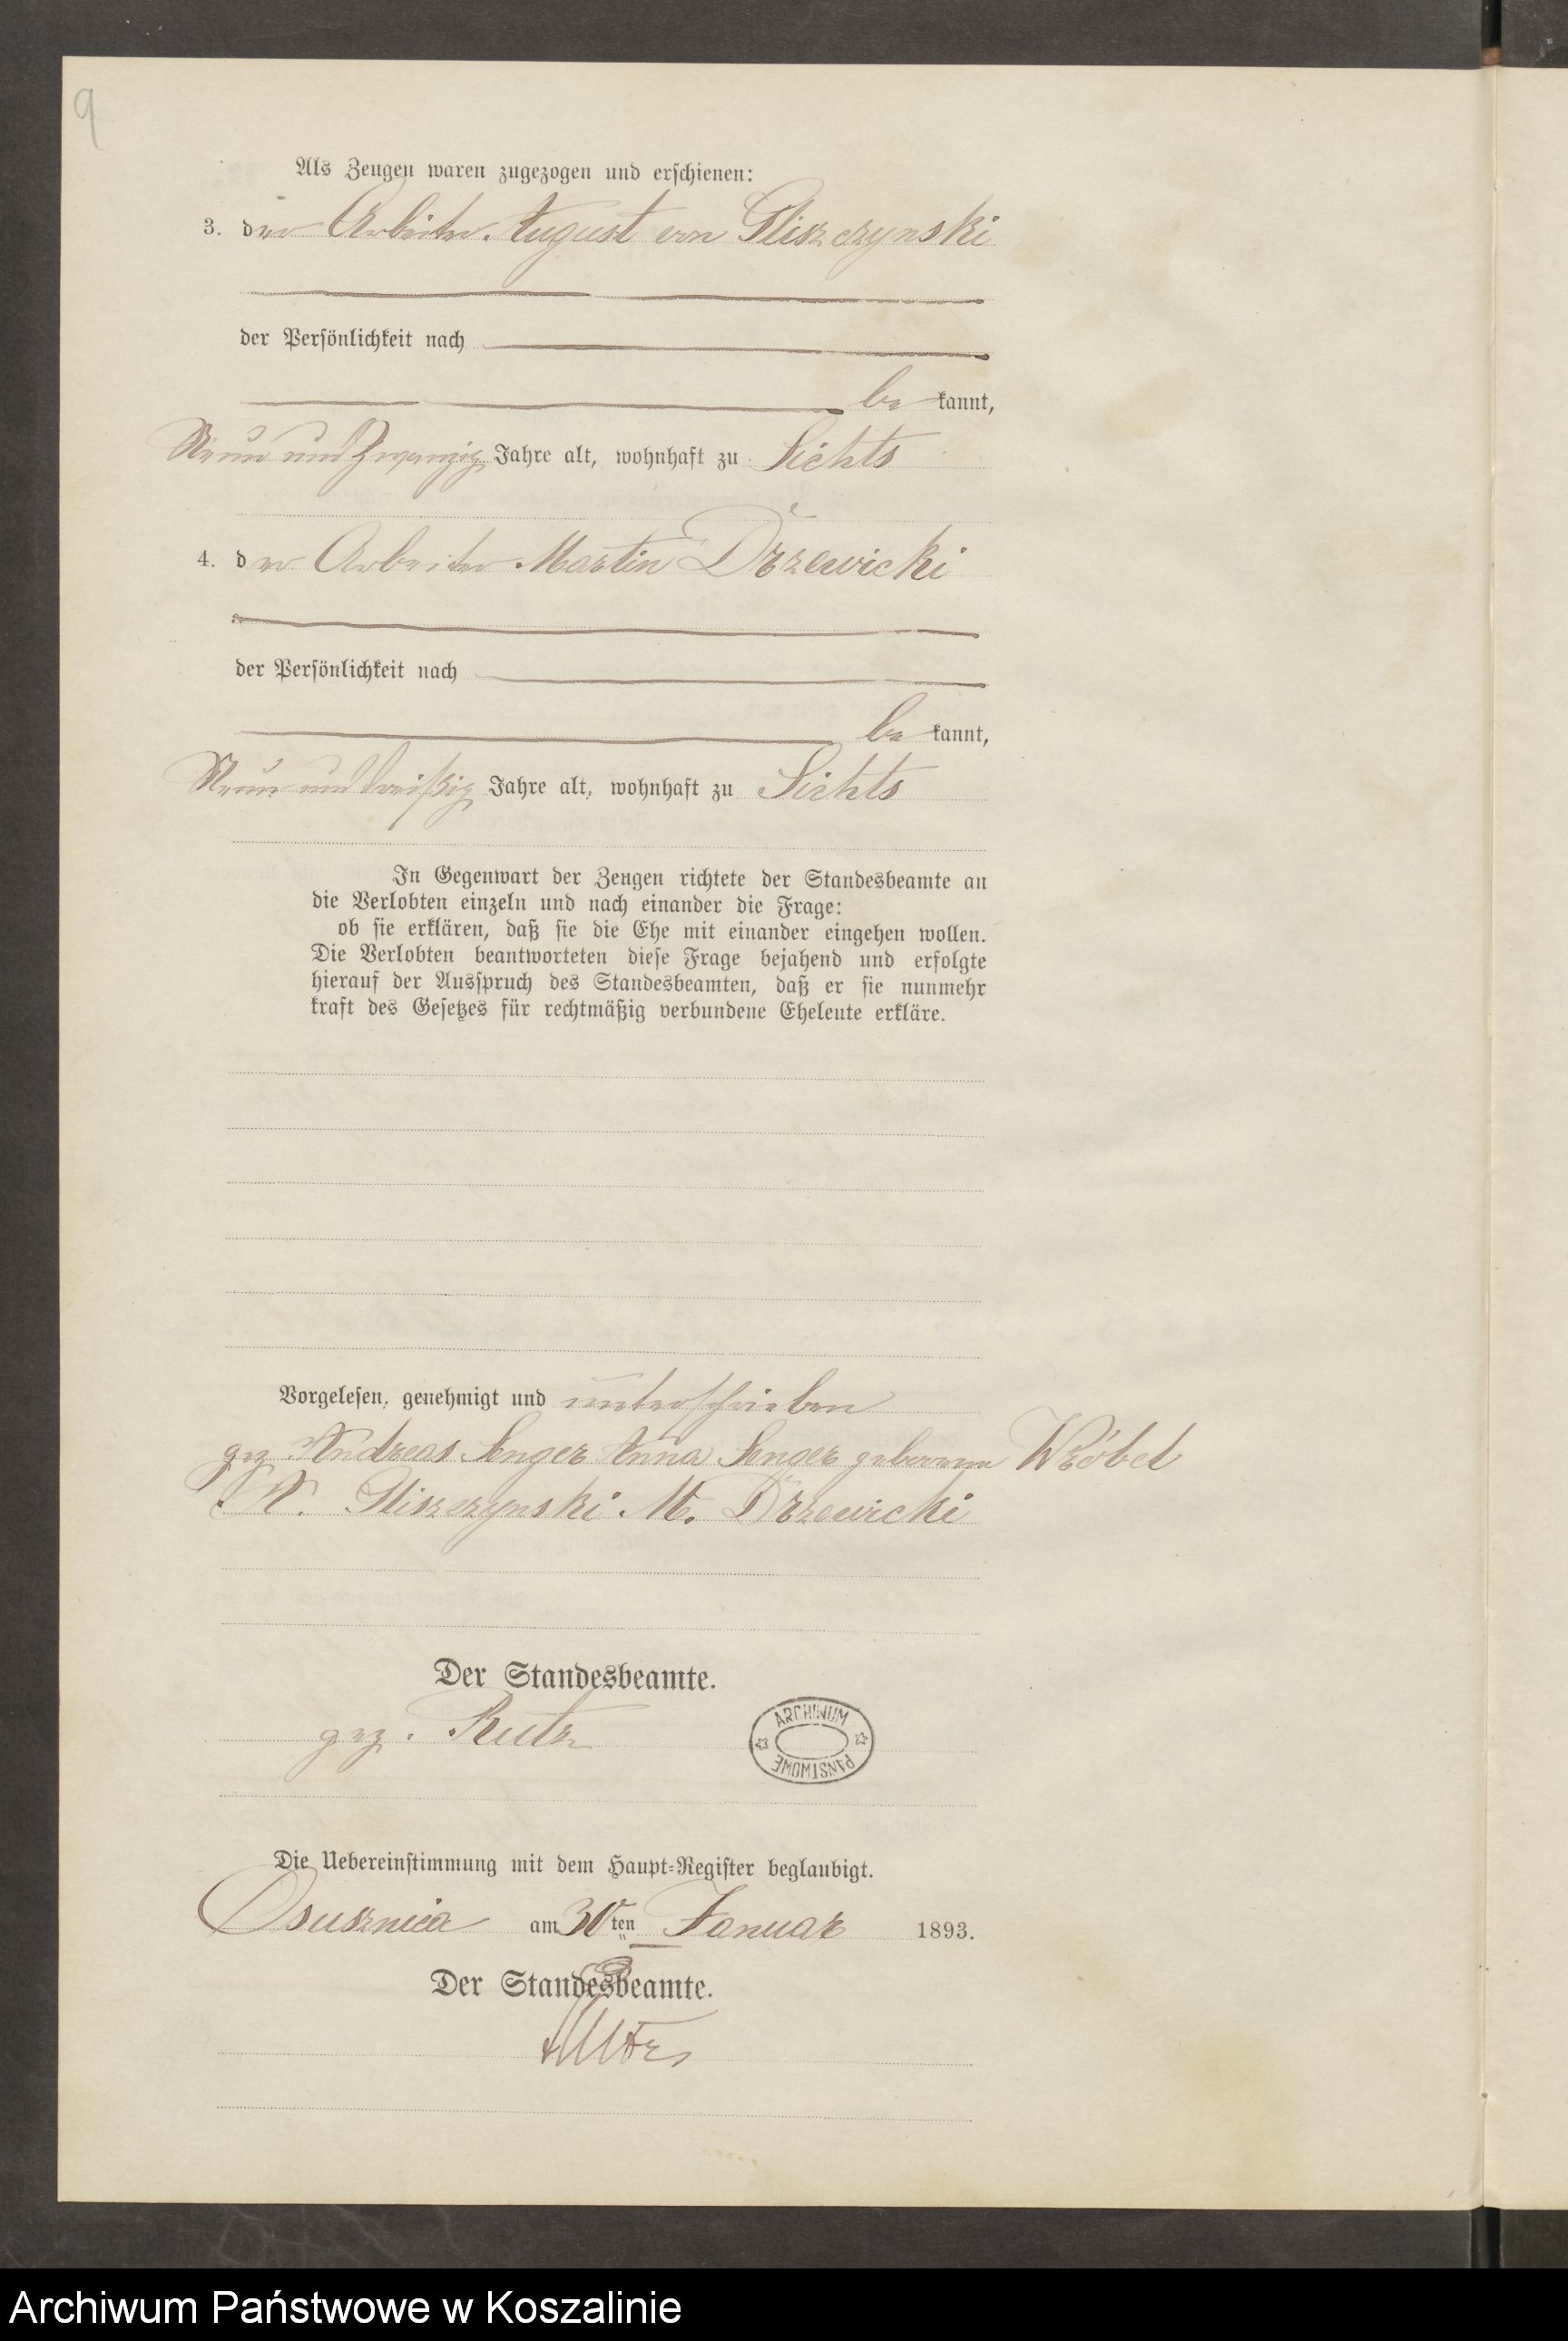 9
Als Zeugen waren zugezogen und erschienen:
3. der Arbeiter August von Gliszczynski
der Persönlichkeit nach
be kannt,
Neun und Zwanzig Jahre alt, wohnhaft zu Lichts
4. der Arbeiter Martin Drzewicki
der Persönlichkeit nach
be kannt,
Neun und dreißig Jahre alt, wohnhaft zu Lichts
In Gegenwart der Zeugen richtete der Standesbeamte an
die Verlobten einzeln und nach einander die Frage:
ob sie erklären, daß sie die Ehe mit einander eingehen wollen.
Die Verlobten beantworteten diese Frage bejahend und erfolgte
hierauf der Ausspruch des Standesbeamten, daß er sie nunmehr
kraft des Gesetzes für rechtmäßig verbundene Eheleute erkläre.
Vorgelesen, genehmigt und unterschrieben
gez. Andreas Senger Anna Senger geborene Wróbel
A. Gliszczynski M. Drzewicki
Der Standesbeamte.
gez. Rutz
ARCHIWUM
PAŃSTWOWE
Die Uebereinstimmung mit dem Haupt-Register beglaubigt.
Osusznica am 30ten Januar 1893.
Der Standesbeamte.
Rutz
Archiwum Państwowe w Koszalinie